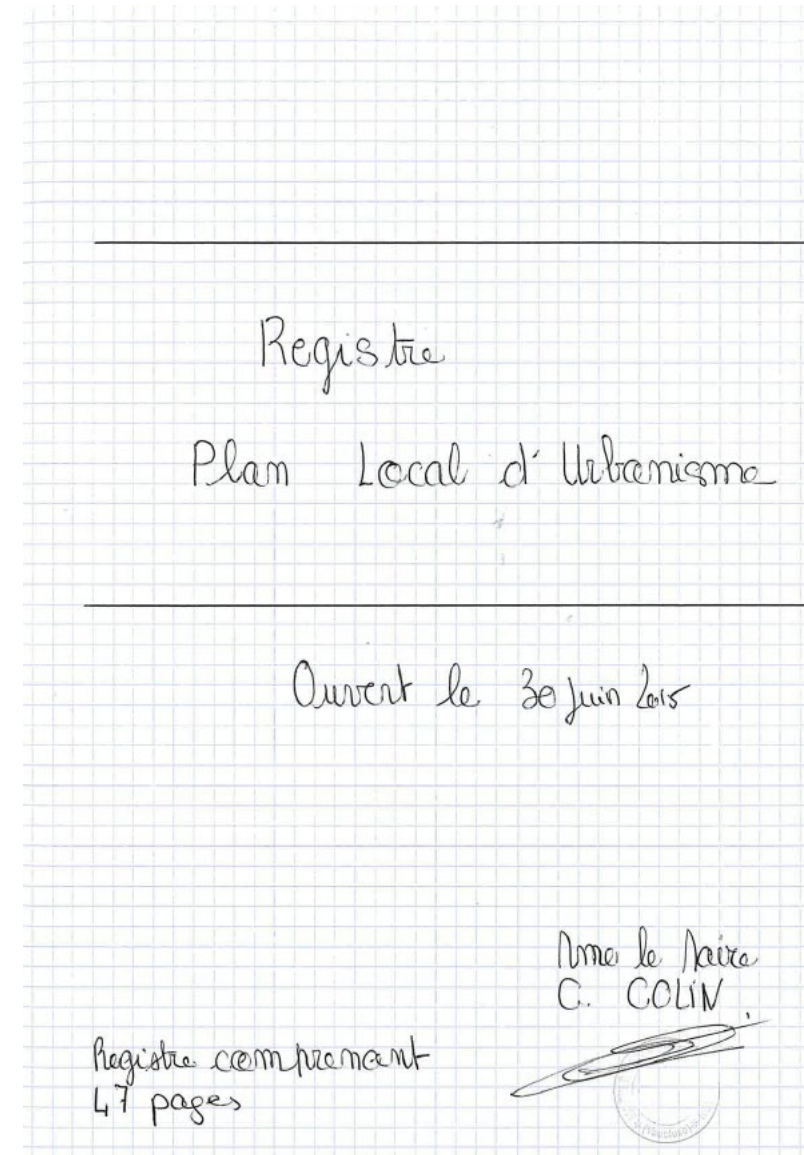 Registre
Plan Local d'Urbanisme
Ouvert le 30 Juin 2015
Mme le Maire
C. COLIN
Registre comprenant
47 pages